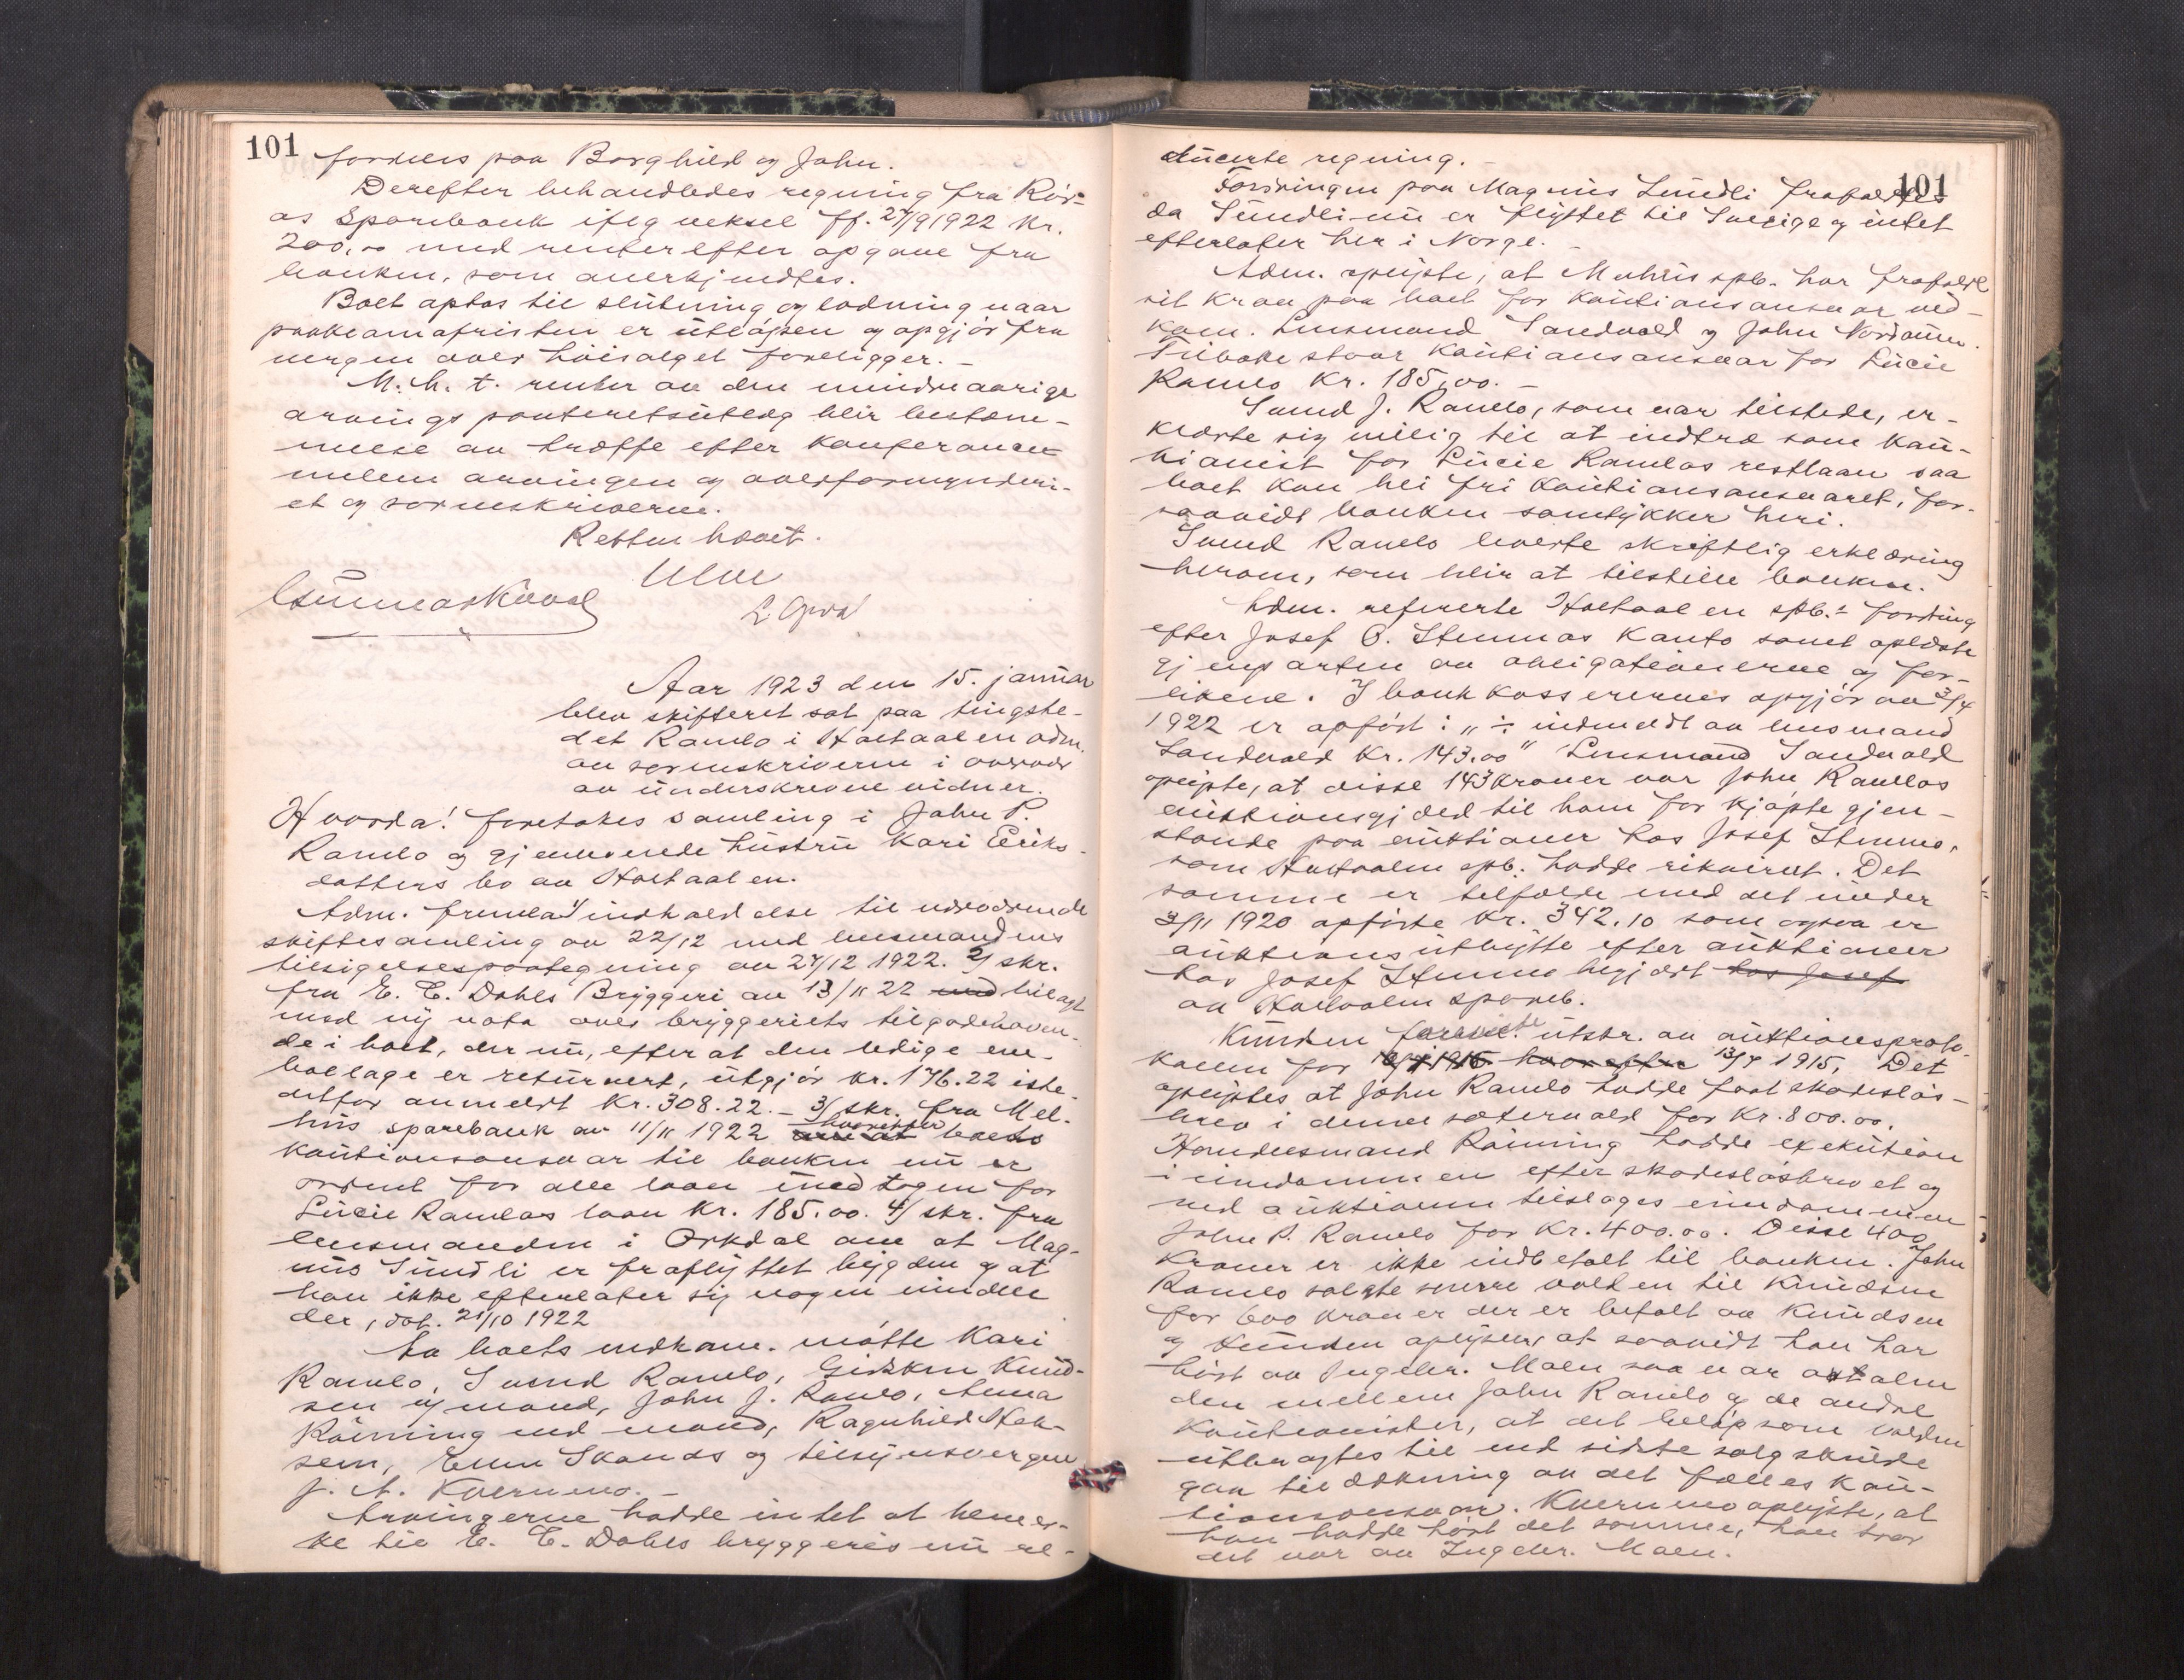 101
fordeles paa Borghild og John.
Derefter behandledes regning fra Rör-
os Sparebank iflg veksel ff. 27/9 1922 kr.
200,00 med renter efter opgave fra
banken, som anerkjendtes.
Boet optas til slutning og lodning naar
proklamafristen er utløpen og opgjör fra
vergen over löisalget foreligger. –
M. h. t. renter av den mindreaarige
arvings panteretsutlæg blir bestem-
melse av træffe efter konferance
mellem arvingen og overformynderi-
et og sorenskriveren.
Retten hævet.
Ulve
Gunnar Kvaal
Aar 1923 den 15. januar
blev skifteret sat paa tingste-
det Ramlo i Holtaalen adm.
av sorenskriveren i overvær
av underskrevne vidner.
Hvorda! foretokes samling i John P.
Ramlo og gjenlevende hustru Kari Eriks-
datters bo av Holtaalen.
Adm. fremla 1/ indkaldelse til nærværende
skiftesamling av 22/12 med lensmandens
tilsigelsespaategning av 27/12 1922. 2/ skr.
fra E. C. Dahls Bryggeri av 13/11 22 med bilagt
med ny nota over bryggeriets tilgodehaven-
de i boet, der nu, efter at den ledige em-
ballage er returnert, utgjör kr. 176.22 iste-
detfor anmeldt kr. 308.22. – 3/ skr. fra Mel-
hus sparebank av 11/11 1922 hvorefter boets
kautionsansvar til banken nu er
ordnet for alle laan undtagen for
Lücie Ramlos laan kr. 185.00. 4/ skr. fra
lensmanden i Orkdal om at Mag-
nus Sundli er fraflyttet bygden og at
han ikke efterlater sig nogen eiendele
der, dat. 21/10 1922
Av boets vedkom. mötte Kari
Ramlo, Svend Ramlo, Gidsken Knud-
sen m/mand, John J. Ramlo, Anna
Röinning med mand, Ragnhild
sem, Skands og tilsynsvergen
J. A. Kvernmo. –
Arvingerne hadde intet at bemer-
ke til E. C. Dahls bryggeris nu re-
101
ducerte regning. –
Fordringen paa Magnus Sundli frafaldtes
da Sundli nu er flyttet til Sverige og intet
efterlater her i Norge. –
Adm. oplyste, at Melhus spb. har frafaldt
sit krav paa boet for kautionsansvar ved-
kom. Lensmand Sandvold og John Nordaune.
Tilbake staar kautionsansvar for Lücie
Ramlo kr. 185,00. –
Svend J. Ramlo, som var tilstede, er-
klærte sig villig til at indtræ som kau-
tionist for Lücie Ramlos restlaan saa
boet kan bli fri kautionsansvaret, for-
saavidt banken samtykker heri.
Svend Ramlo leverte skriftlig erklæring
herom, som blir at tilstille banken.
Adm. refererte Holtaalen spb.s fordring
efter Josef O. Stenmos konto samt oplæste
gjenparten av obligationerne og for-
likene. I bankkassererens opgjör av 3/4
1922 er opfört: „÷ indmeldt av lensmand
Sandvold kr. 143.00" Lensmand Sandvold
oplyste, at disse 143 kroner var John Ramlos
auktionsgjæld til ham for kjöpte gjen-
stande paa auktioner hos Josef Stenmo,
som Holtaalen spb. hadde rekvirert. Det
samme er tilfælde med det under
3/11 1920 opförte kr. 342.10 som ogsaa er
auktionsutbytte efter auktioner
hos Josef Stenmo begjært hos Josef
av Holtaalen spareb.
Kunden utskr. av auktionsproto-
kollen for 13/7 1915. Det
oplystes at John Ramlo hadde faat skadeslös-
brev i denne sætervold for kr. 800.00.
Handelsmand Röinning hadde exekution
i eiendommen efter skadeslösbrevet og
ved auktionen tilsloges eiendommen
John P. Ramlo for kr. 400.00. Disse 400
kroner er ikke indbetalt til banken. John
Ramlo solgte senere volden til Knudsen
for 600 kroner der er betalt av Knudsen
og Kunden oplyser, at saavidt han har
hört av Ingebr. Moen saa var avtalen
den mellem John Ramlo og de andre
kautionister, at det belöp som volden
utbragtes til ved sidste salg skulde
gaa til dækning av det fælles kau-
tionsansvar. Kvernmo oplyste, at
han hadde hört det samme, han tror
det var av Ingebr. Moen.